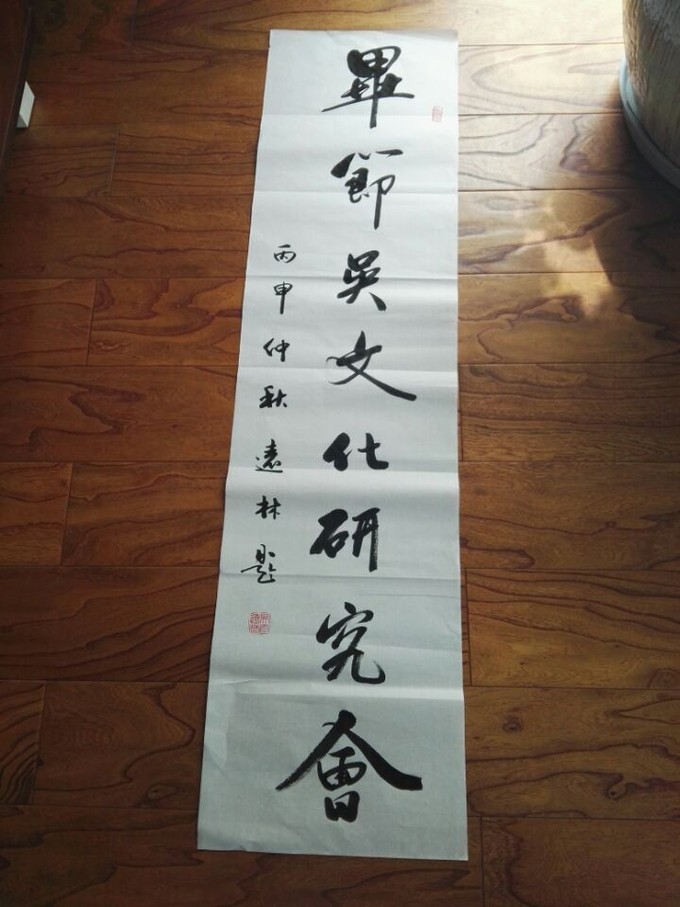 畢節吳文化研究會
丙申仲秋遠林題